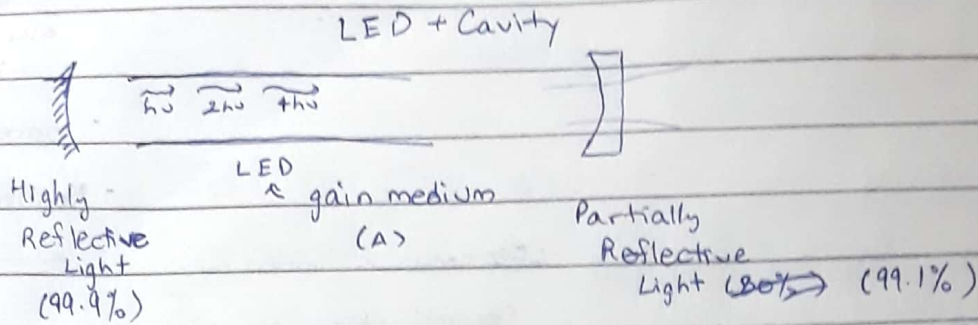 LED + Cavity
hν 2hν 4hν
LED
↖ gain medium
(A)
Highly
Reflective
Light
(99.9%)
Partially
Reflective
Light (99.1%)